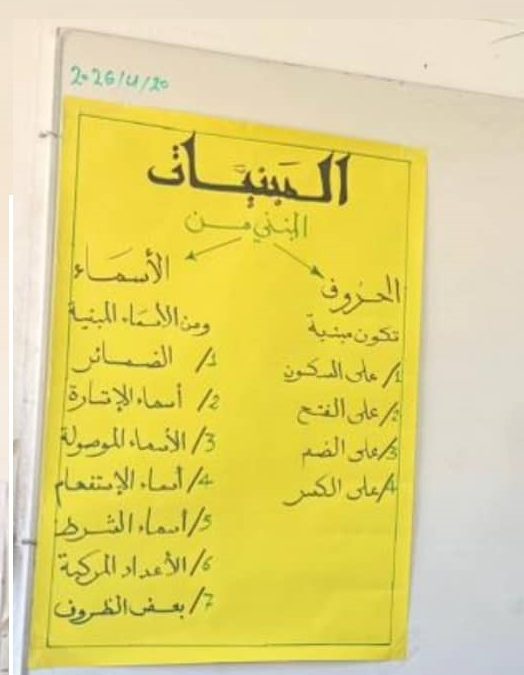 2026/4/20
المبنيات
المبني من
الحروف
تكون مبنية
1/ على السكون
2/ على الفتح
3/ على الضم
4/ على الكسر
الأسماء
ومن الأسماء المبنية
1/ الضمائر
2/ أسماء الإشارة
3/ الأسماء الموصولة
4/ أسماء الإستفهام
5/ أسماء الشرط
6/ الأعداد المركبة
7/ بعض الظروف